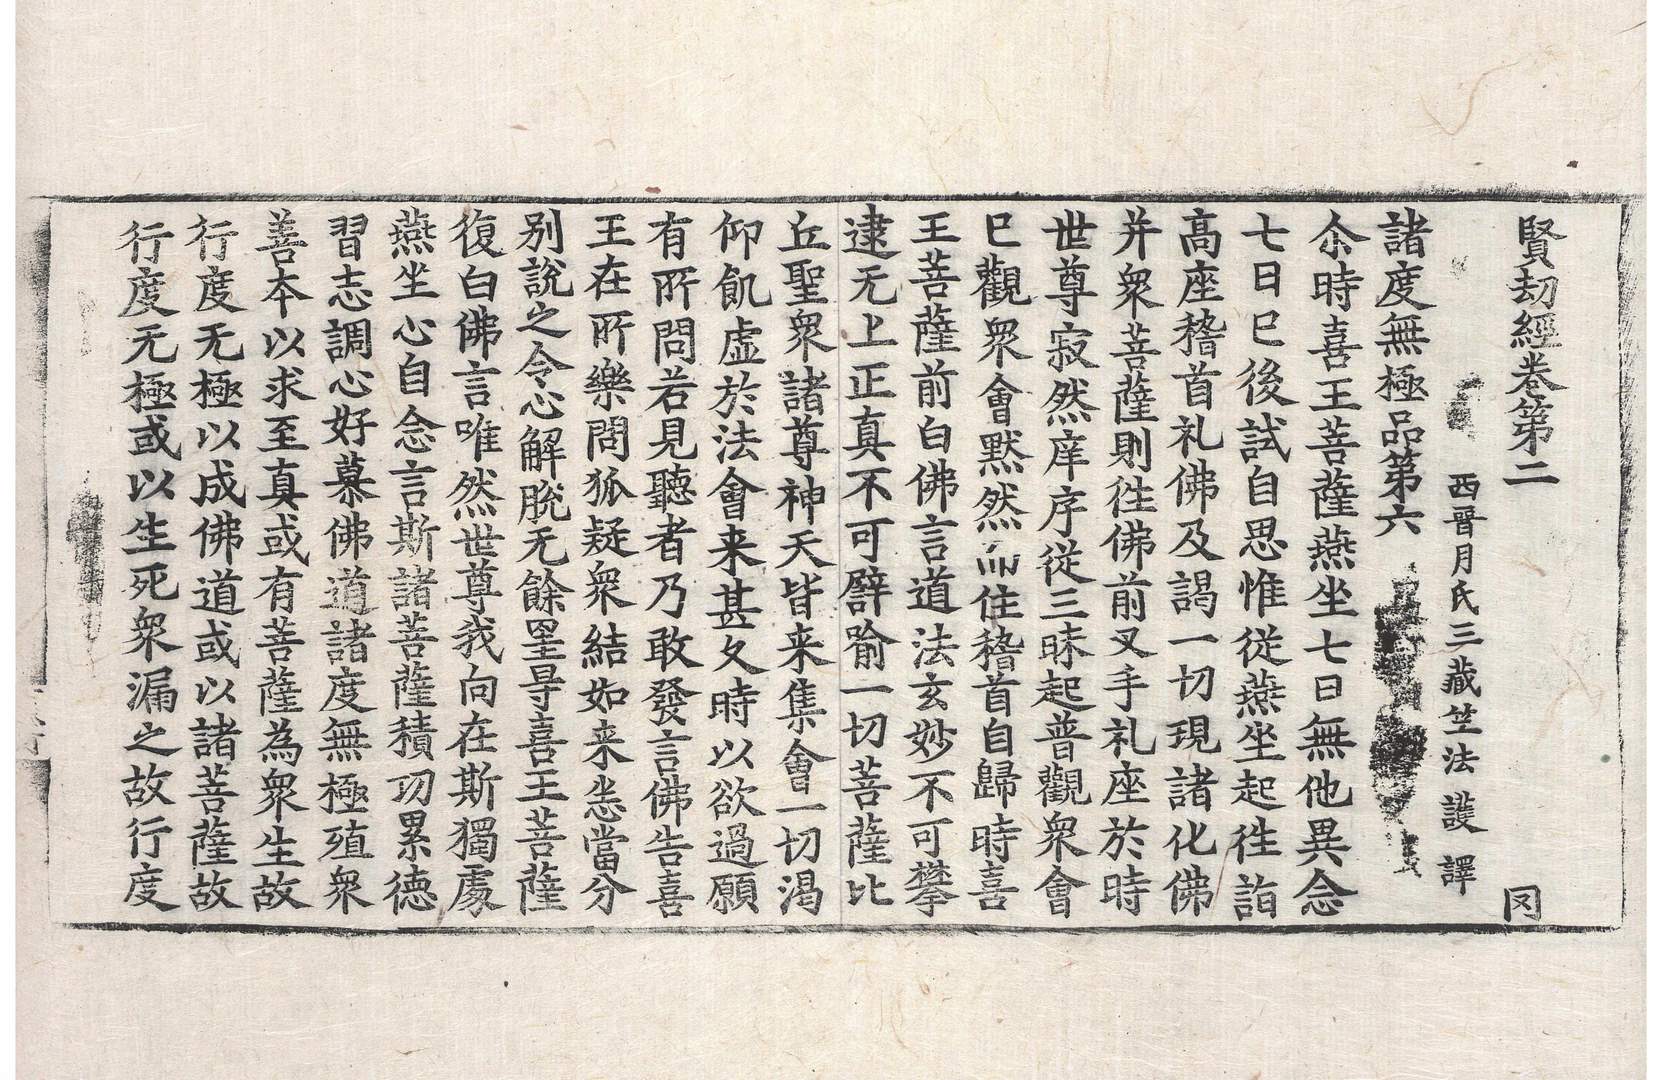 賢劫經卷第二 罔
西晋月氏三藏竺法護 譯
諸度無極品第六
尒時喜王菩薩燕坐七日無他異念
七日已後試自思惟從燕坐起徃詣
高座稽首礼佛及謁一切現諸化佛
并衆菩薩則徃佛前叉手礼座於時
世尊寂然庠序從三昧起普觀衆會
已觀衆會黙然而住稽首自歸時喜
王菩薩前白佛言道法玄妙不可攀
逮无上正真不可譬喻一切菩薩比
丘聖衆諸尊神天皆来集會一切渴
仰飢虛於法會来甚久時以欲過願
有所問若見聽者乃敢發言佛告喜
王在所樂問狐疑衆結如来悉當分
别說之令心解脫无餘罣㝵喜王菩薩
復白佛言唯然世尊我向在斯獨處
燕坐心自念言斯諸菩薩積功累德
習志調心好慕佛道諸度無極殖衆
善本以求至真或有菩薩為衆生故
行度无極以成佛道或以諸菩薩故
行度无極或以生死衆漏之故行度